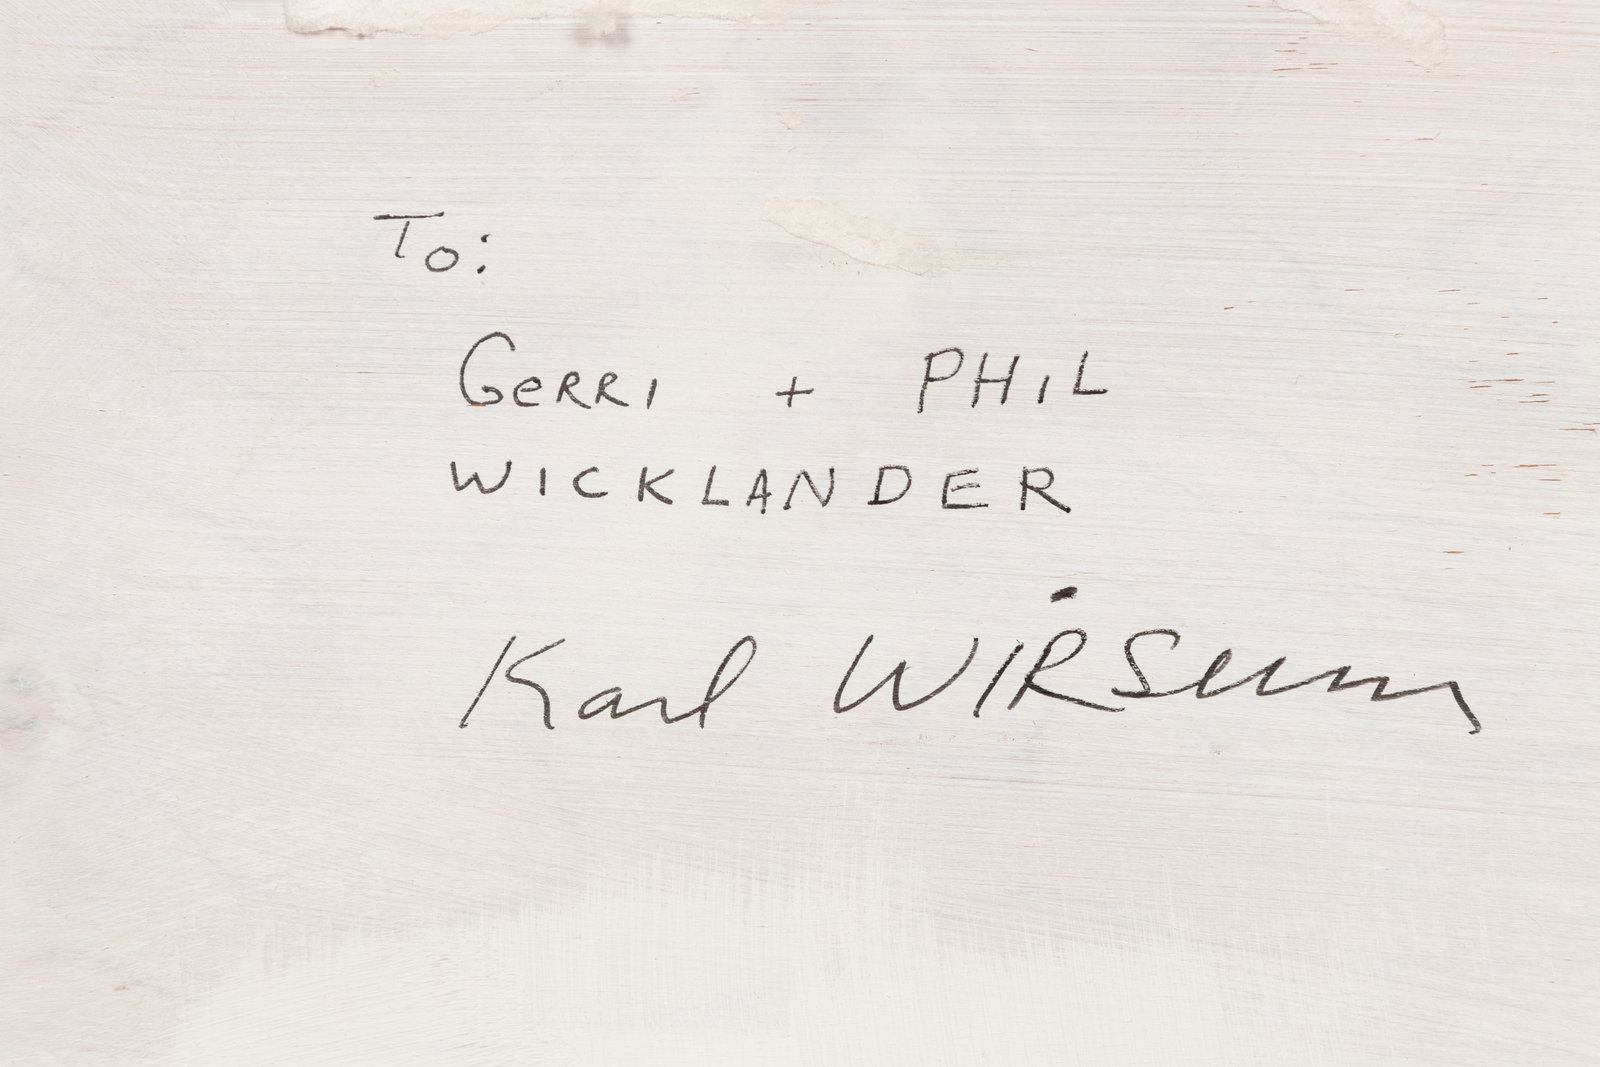 To:
GeRRI + PHiL
WICKLANDER
Karl WIRSum